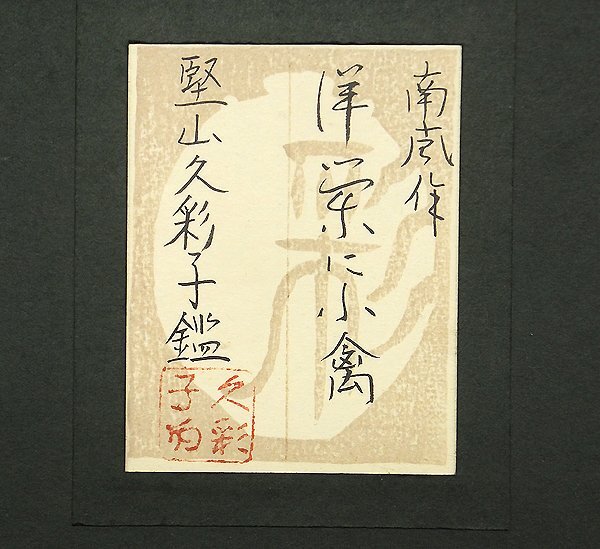 南風作
洋蘭に小禽
堅山久彩子鑑
久彩
子